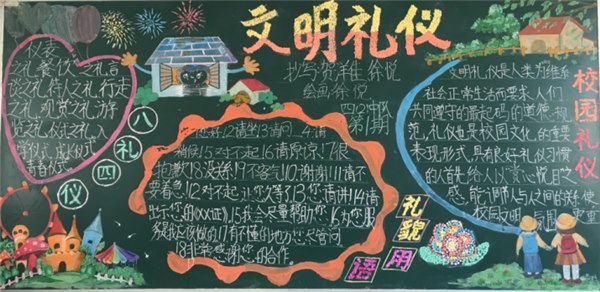 文明礼仪
抄写:贺洋佳 徐悦
绘画:徐悦
四(2)中队
第1期
仪表
之礼、餐饮之礼、言
之礼、待人之礼、行走
之礼、观赏之礼、游
览之礼、仪式之礼、入
学仪式、成长仪式、
青春仪式。
八礼四仪
您好!2请坐!3请问。4请
稍候!5对不起!6请原谅!7很
抱歉!8没关系!9不客气!10.谢谢!11请不
要着急。12.对不起,让您久等了!13.您请讲!14请
出示您的xxx(证)15我会尽量帮助你。16为您服
务是我应该做的!17有不懂的地方您尽管问。
18非常感谢您的合作。
礼貌用语
校园礼仪
文明礼仪是人类为维系
社会正常生活而要求人们
共同遵守的最起码的道德规
范,礼仪也是校园文化的重要
表现形式,具有良好礼仪习惯
的人首先给人以赏心悦目之
感,能门调节人与人之间的关系,使
校园文明氛围更重